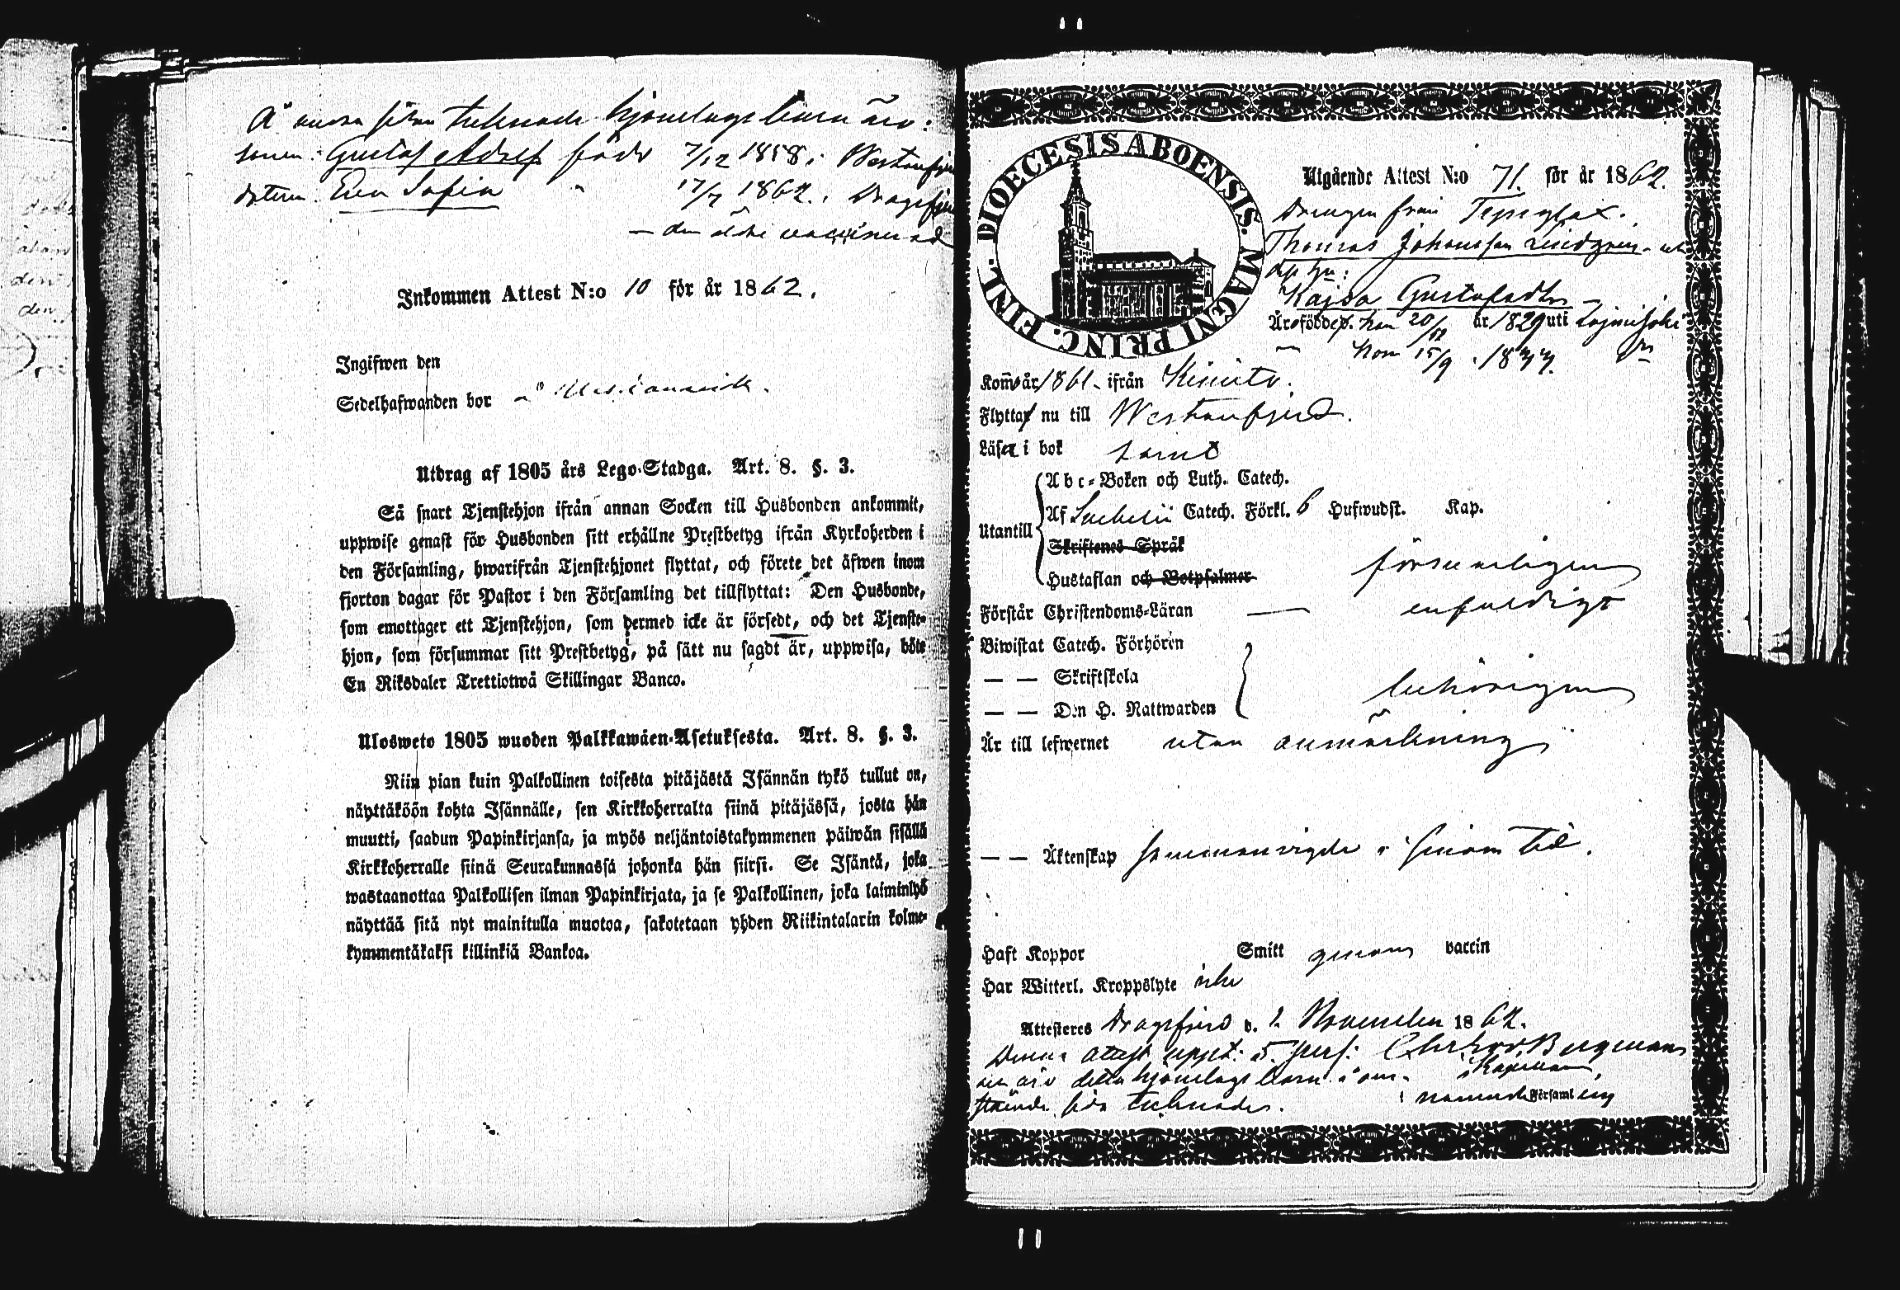 Å andra sidan tecknade hjonelags barn äro:
sonen: Gustaf Adolf född 7/12 1858 i Westanfjerd
dottren Eva Sofia " 17/7 1862 i Dragsfjerd
— den äldre vaccinerad
Inkommen Attest N:o 10 för år 1862.
Ingifwen den
Sedelhafwanden bor å
Utdrag af 1805 års Lego-Stadga. Art. 8. §. 3.
Så snart Tjenstehjon ifrån annan Socken till Husbonden ankommit,
uppwise genast för Husbonden sitt erhållne Prestbetyg ifrån Kyrkoherden i
den Församling, hwarifrån Tjenstehjonet flyttat, och förete det äfwen inom
fjorton dagar för Pastor i den Församling det tillflyttat: Den Husbonde,
som emottager ett Tjenstehjon, som dermed icke är försedt, och det Tjenste-
hjon, som försummar sitt Prestbetyg, på sätt nu sagdt är, uppwisa, böte
En Riksdaler Trettiotwå Skillingar Banco.
Ulosweto 1805 wuoden Palkkawäen-Asetuksesta. Art. 8. §. 3.
Niin pian kuin Palkollinen toisesta pitäjästä Isännän tykö tullut on,
näyttäköön kohta Isännälle, sen Kirkkoherralta siinä pitäjässä, josta hän
muutti, saadun Papinkirjansa, ja myös neljäntoistakymmenen päiwän sisällä
Kirkkoherralle siinä Seurakunnassa johonka hän siirsi. Se Isäntä, joka
wastaanottaa Palkollisen ilman Papinkirjata, ja se Palkollinen, joka laiminlyö
näyttää sitä nyt mainitulla muotoa, sakotetaan yhden Riikintalarin kolme-
kymmentäkaksi killinkiä Bankoa.
DIOECESIS ABOENSIS. MAGNI PRINC. FINL.
Utgående Attest N:o 71. för år 1862.
Drengen från
Thomas Johansson Lindgren
Kajsa Gustafsdr
Äro födde han 20/12 år 1829 uti
hon 15/9 1833
Kom år 1861 ifrån Kimito.
Flyttar nu till Westanfjerd.
Läser i bok
Utantill
Abc-Boken och Luth. Catech.
Af Svebelii Catech. Förkl. 6 Hufwudst. Kap.
Skriftenes Språk
Hustaflan och Botpsalmer försvarligen
Förstår Christendoms-Läran — enfaldigt
Biwistat Catech. Förhören
— — Skriftskola
— — Den H. Nattwarden behörigen
Är till lefwernet utan anmärkning
— — Äktenskap sammanvigde i sinom tid.
Haft Koppor Smitt genom vaccin
Har Witterl. Kroppslyte icke
Attesteres Dragsfjerd d. 2 November 1862.
Denna attest uppt: 5 pers: Bergman
nen äro detta hjonelags barn å om- Kapellan
stående sida tecknade. i nämnde Församling